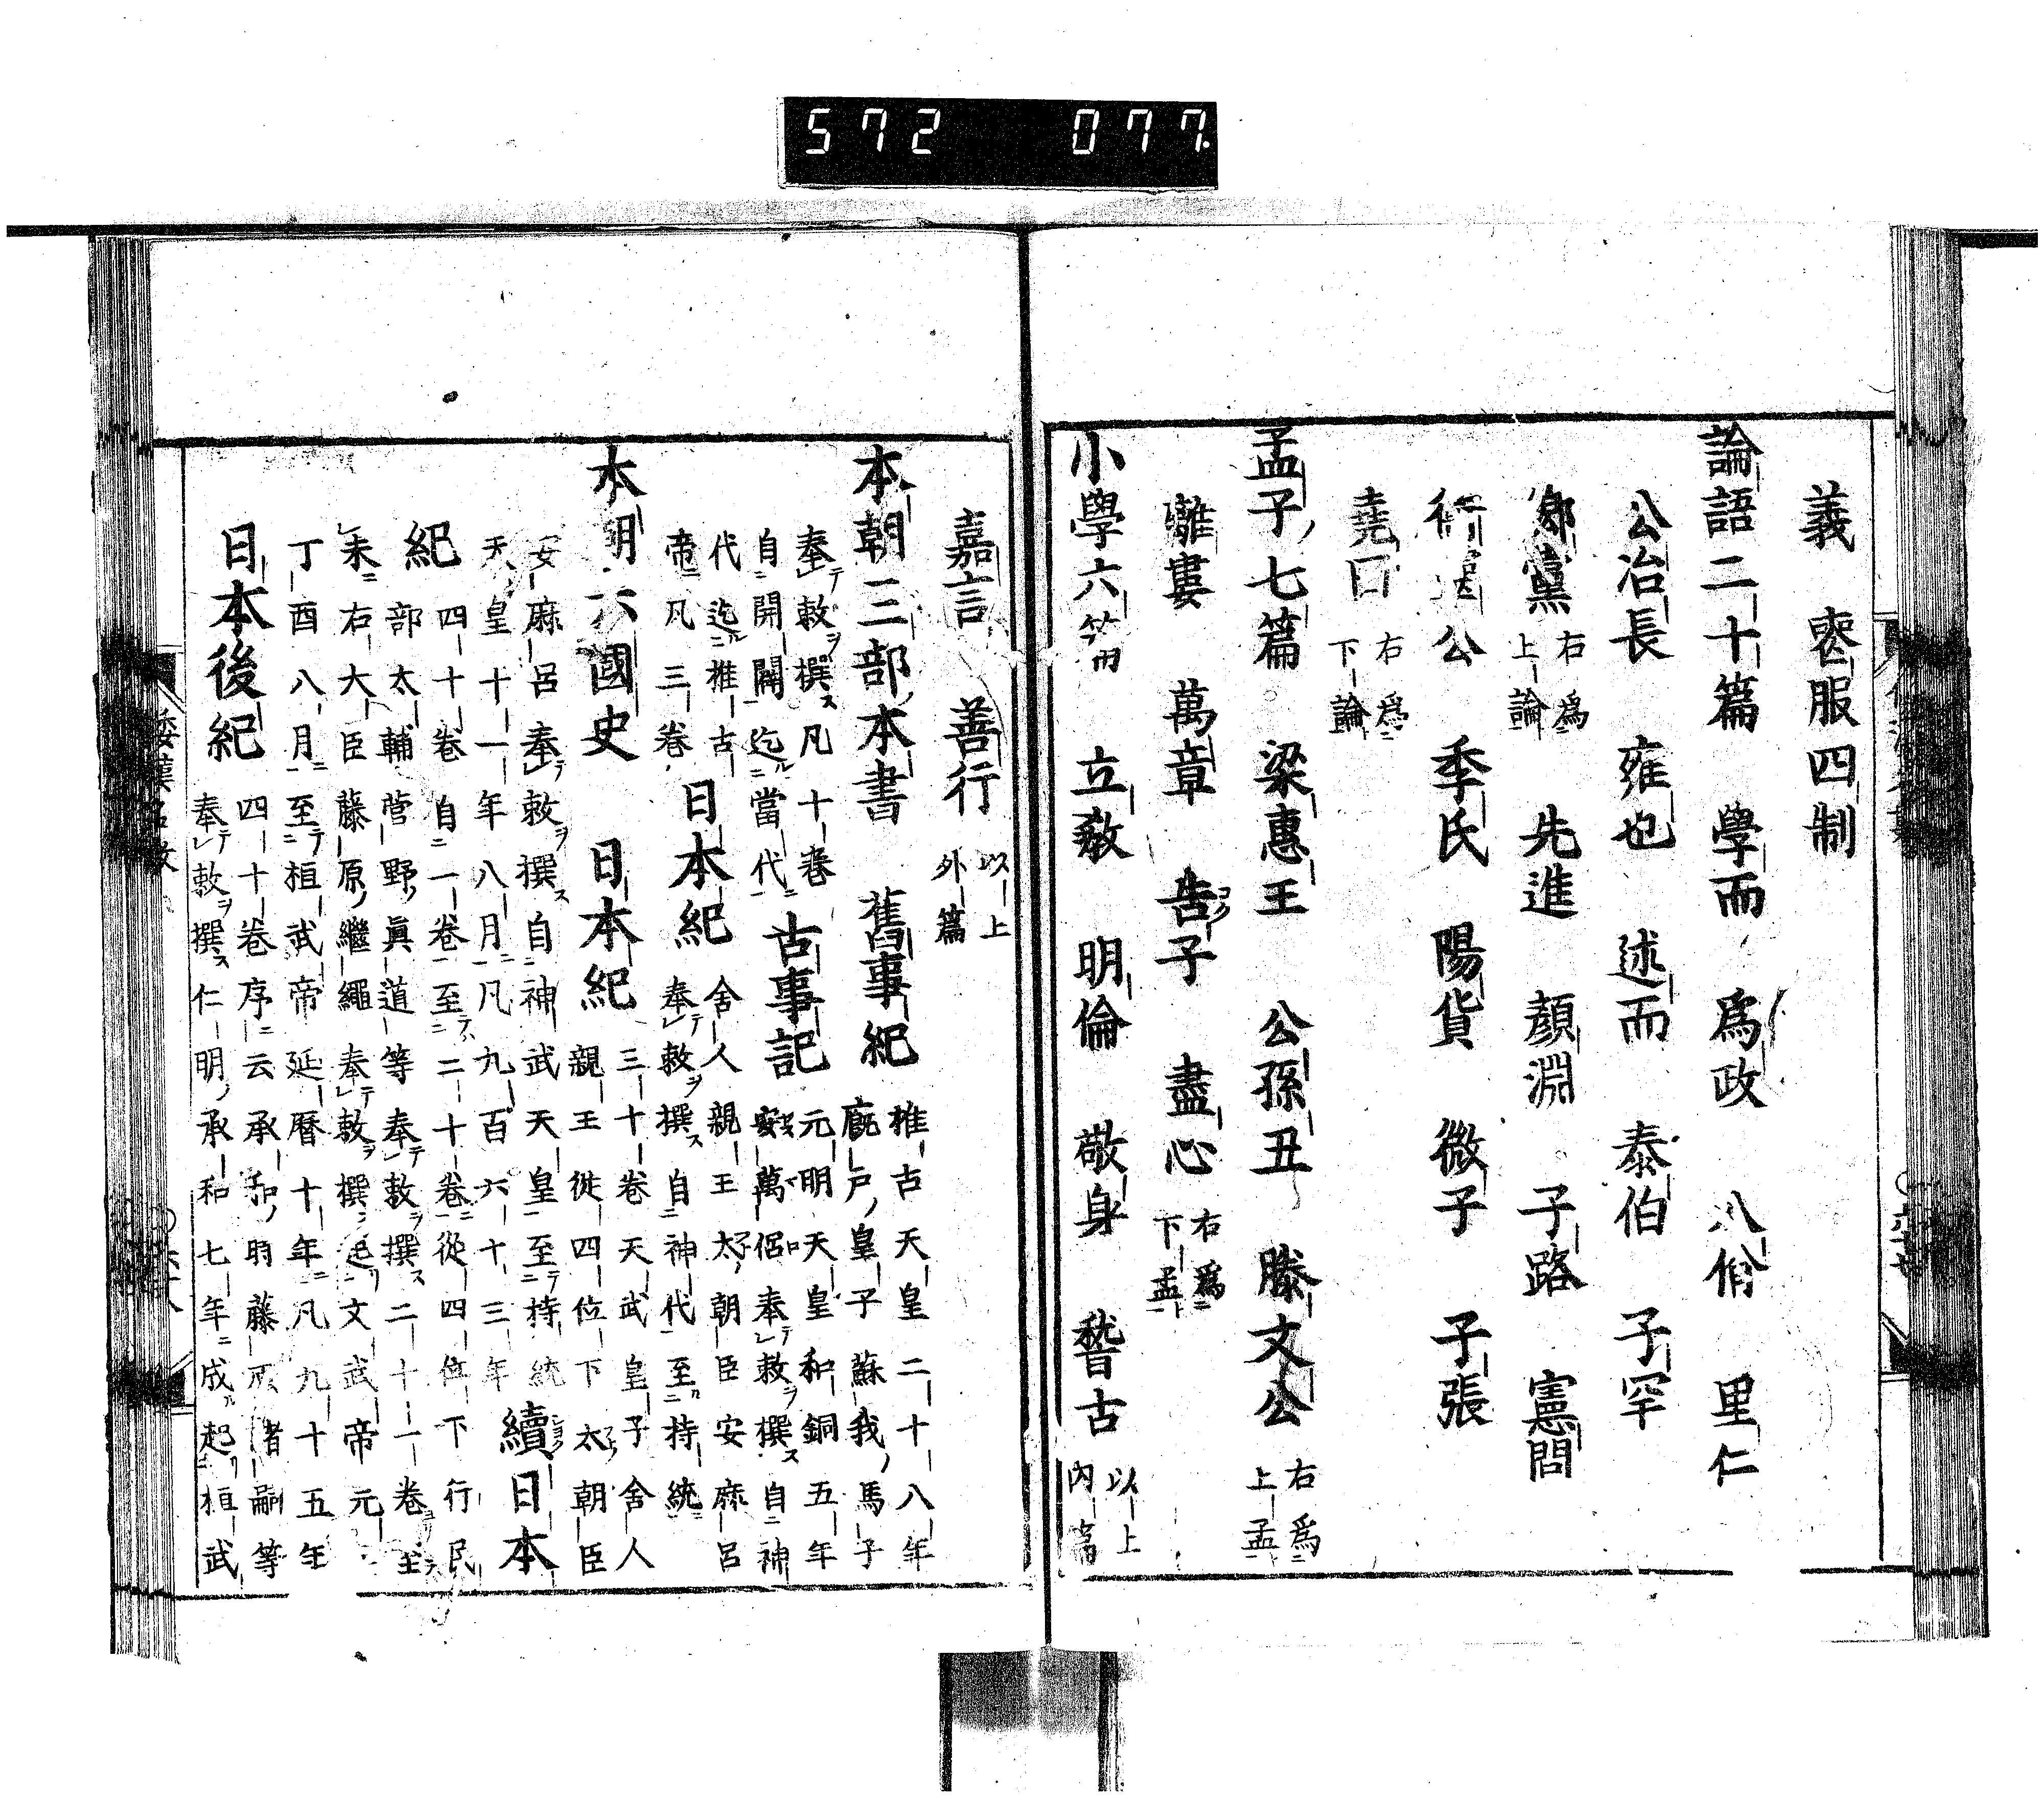 572 077
義 喪服四制
論語二十篇 學而 爲政 八佾 里仁
公冶長 雍也 述而 泰伯 子罕
鄉黨 右爲上論 先進 顏淵 子路 憲問
衛靈公 季氏 陽貨 微子 子張
堯曰 右爲下論
孟子七篇 梁惠王 公孫丑 滕文公 右爲上孟
離婁 萬章 告子 盡心 右爲下孟
小學六篇 立教 明倫 敬身 稽古 以上內篇
嘉言 善行 以上外篇
本朝三部本書 舊事紀 推古天皇二十八年
廐戸皇子蘇我馬子
奉敕撰凡十卷 古事記 元明天皇和銅五年
自開闢迄當代 安萬侶奉敕撰自神
代迄推古 日本紀 舍人親王太朝臣安麻呂
帝凡三卷 奉敕撰自神代至持統
本朝六國史 日本紀 三十卷天武皇子舍人
親王從四位下太朝臣
安麻呂奉敕撰自神武天皇至持統 續日本
天皇十一年八月凡九百六十三年
紀 四十卷自一卷至二十卷從四位下行民
部太輔菅野眞道等奉敕撰二十一卷至
末右大臣藤原繼繩奉敕撰起文武帝元
丁酉八月至桓武帝延曆十年凡九十五年
日本後紀 四十卷序云承和時藤原緒嗣等
奉敕撰仁明承和七年成起桓武